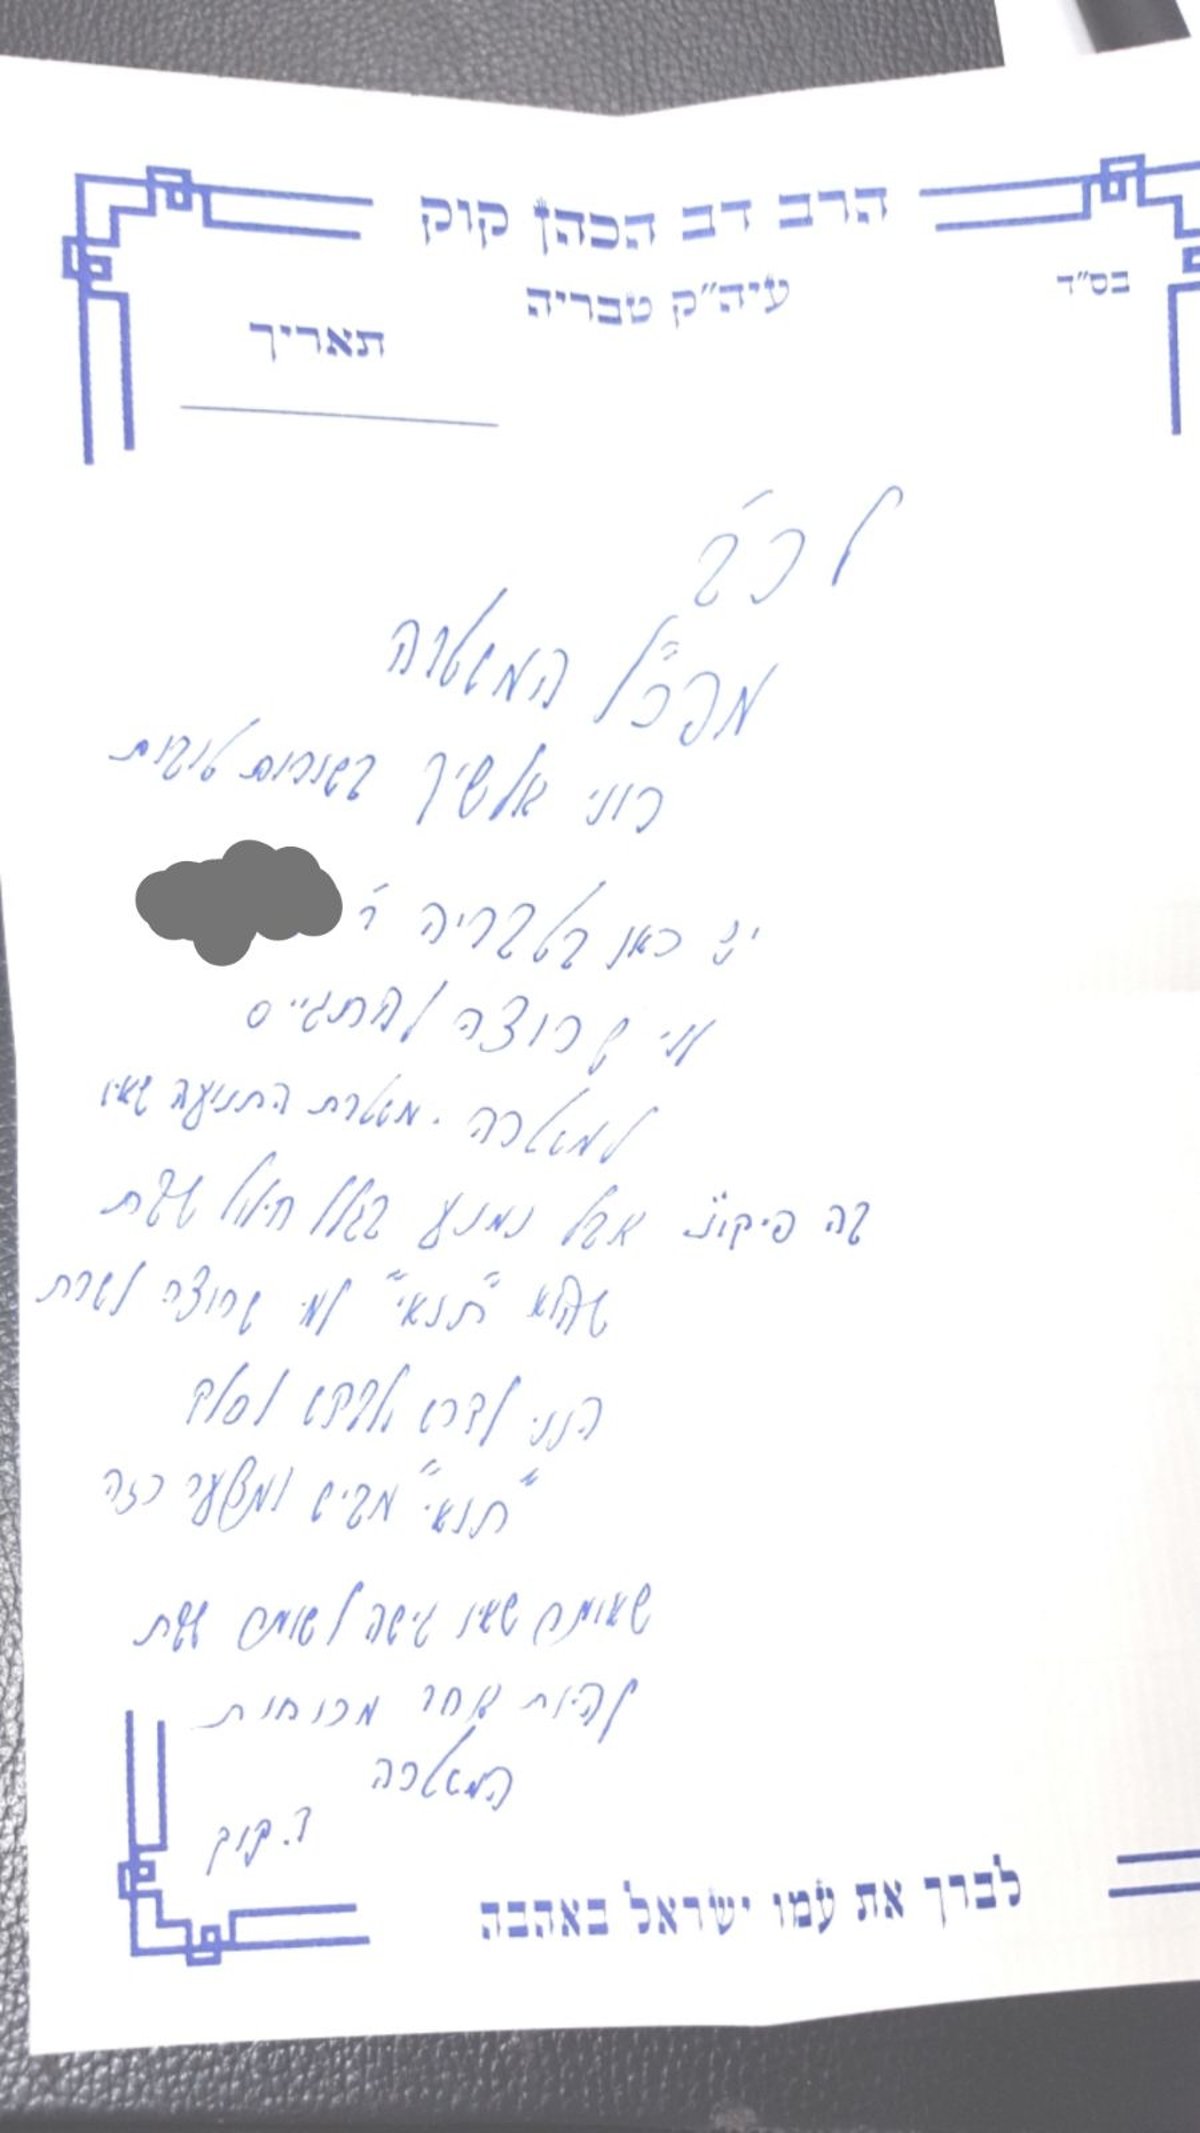 הרב דב הכהן קוק
בס"ד
עיה"ק טבריה
תאריך
לכ'
מפכ"ל המשטרה
רוני אלשיך בשורות טובות
יש כאן בטבריה ר'
שרוצה להתגייס
למשטרה. משטרת התנועה שאין
בה פיקו"נ אבל נמנע בגלל חילול שבת
שהוא "תנאי" למי שרוצה לשרת
הנני לדרוש ולבקש לסלק
"תנאי" מביש ומצער כזה
שאומר שאין גישה לשומר שבת
להיות אחר מכוחות
המשטרה
ד. קוק
לברך את עמו ישראל באהבה